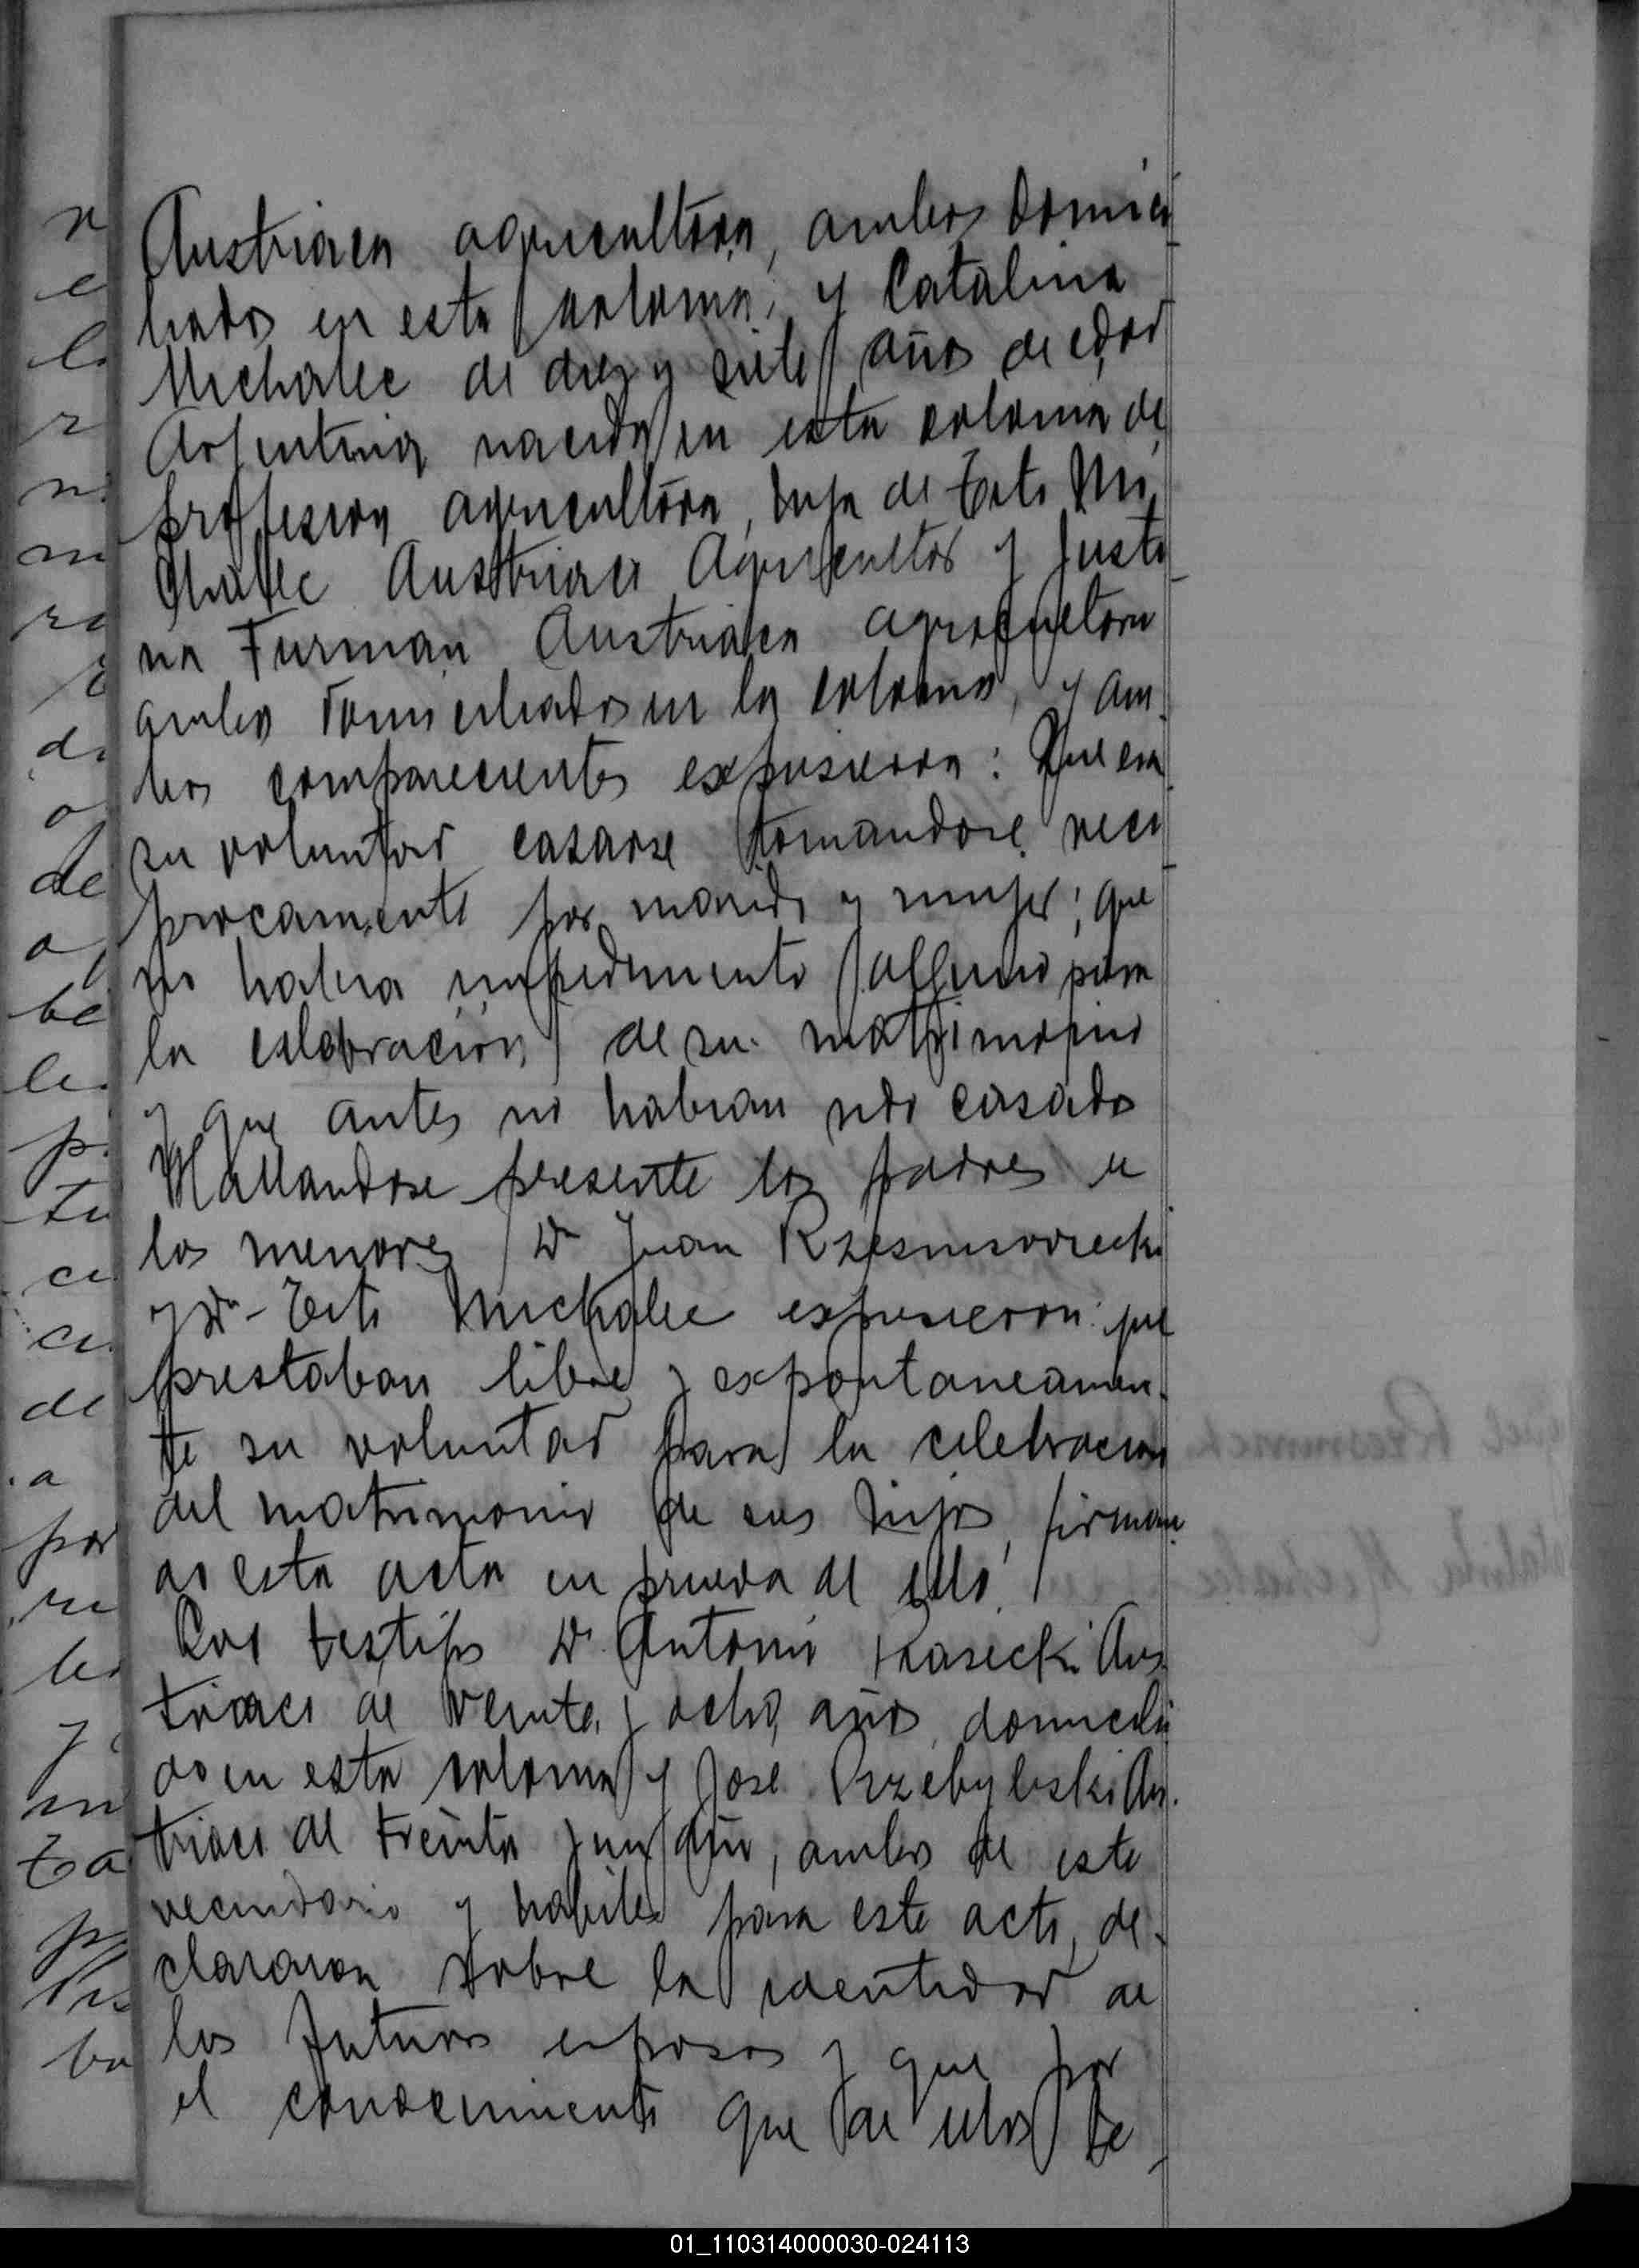 Austriaca agricultora, ambos domici
liados en esta colonia; y Catalina
Michalec de diez y siete años de edad
Argentina nacida en esta colonia de
profesion agricultora, hija de Tito Mi
chalec Austriaco Agricultor y Justi
na Furman Austriaca agricultora
ambos domiciliados en la colonia, y am
bos comparecientes expusieron: Que era
su voluntad casarse tomandose reci
procamente por marido y mujer; que
no habia impedimento alguno para
la celebracion de su matrimonio
y que antes no habian sido casados
Hallandose presente los padres de
los menores Dn Juan
y Dn Tito Michalec expusieron: que
prestaban libre y expontaneamen-
te su voluntad para la celebracion
del matrimonio de sus hijos, firman
do esta acta en prueba de ello.
Los testigos Dn Antonio Kasecki Aus
triaco de veinte y ocho años, domicilia
do en esta colonia y José Przebyleski Aus
triaco de treinta y un año, ambos de este
vecindario y habiles para este acto, de-
clararon sobre la identidad de
los futuros esposos y que por
el conocimiento que de ellos te
01_110314000030-024113